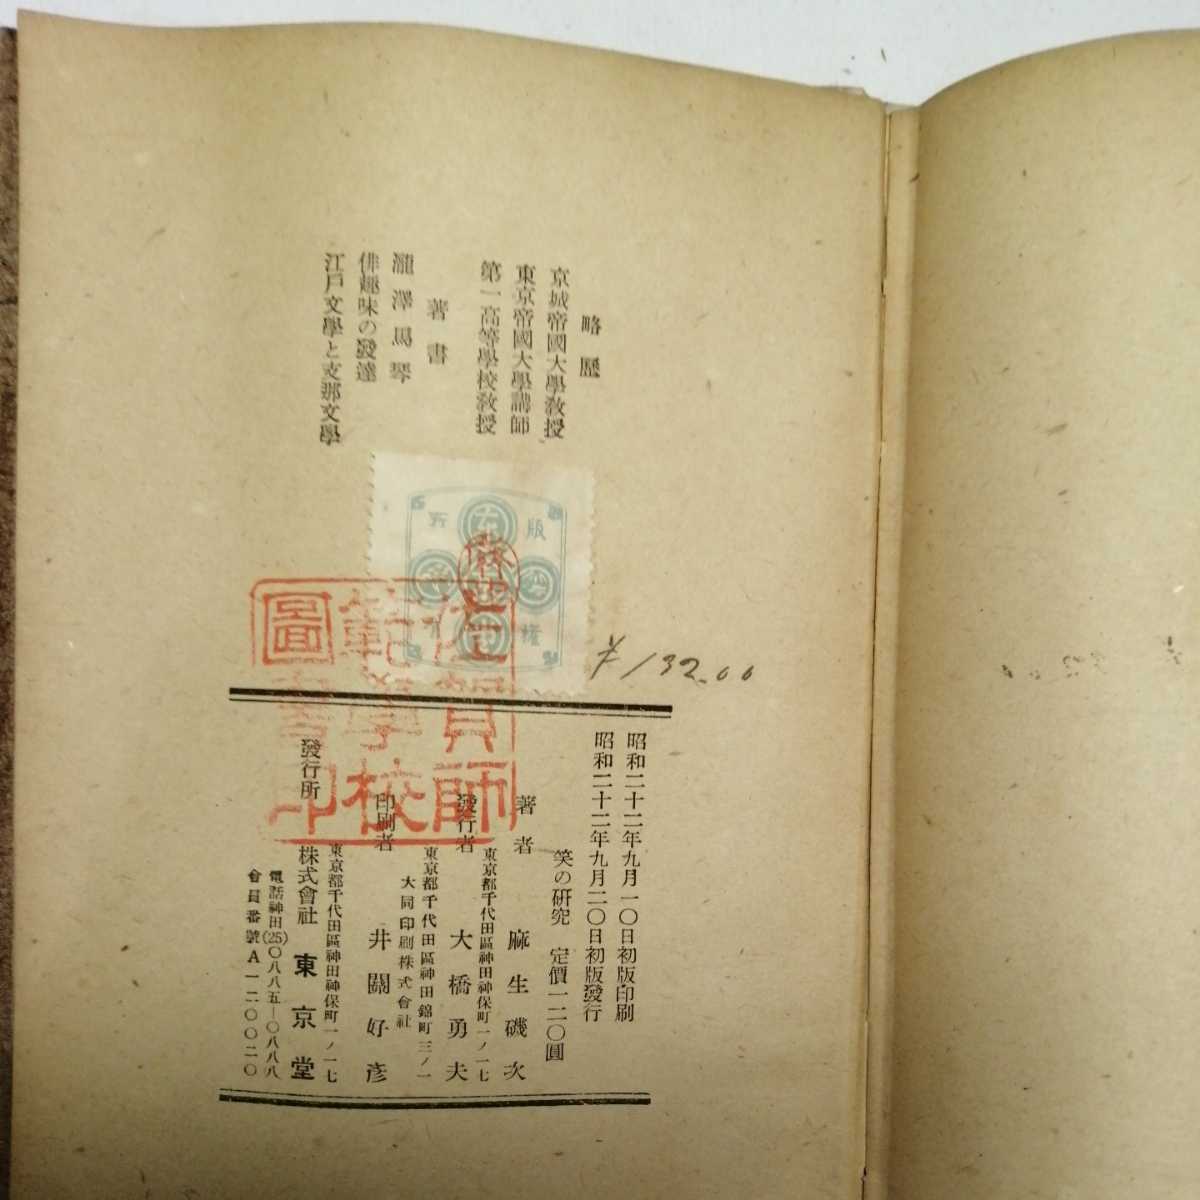 略歷
京城帝國大學教授
東京帝國大學講師
第一高等學校教授
著書
瀧澤馬琴
俳趣味の發達
江戸文學と支那文學
版權
¥132.00
佐賀師
範學校
圖書印
昭和二十二年九月一〇日初版印刷
昭和二十二年九月二〇日初版發行
笑の研究 定價一二〇圓
著者 麻生磯次
東京都千代田區神田神保町一ノ一七
發行者 大橋勇夫
東京都千代田區神田錦町三ノ一
大同印刷株式會社
印刷者 井關好彦
東京都千代田區神田神保町一ノ一七
發行所 株式會社 東京堂
電話神田(25)〇八八五—〇八八八
會員番號A一二〇〇二〇